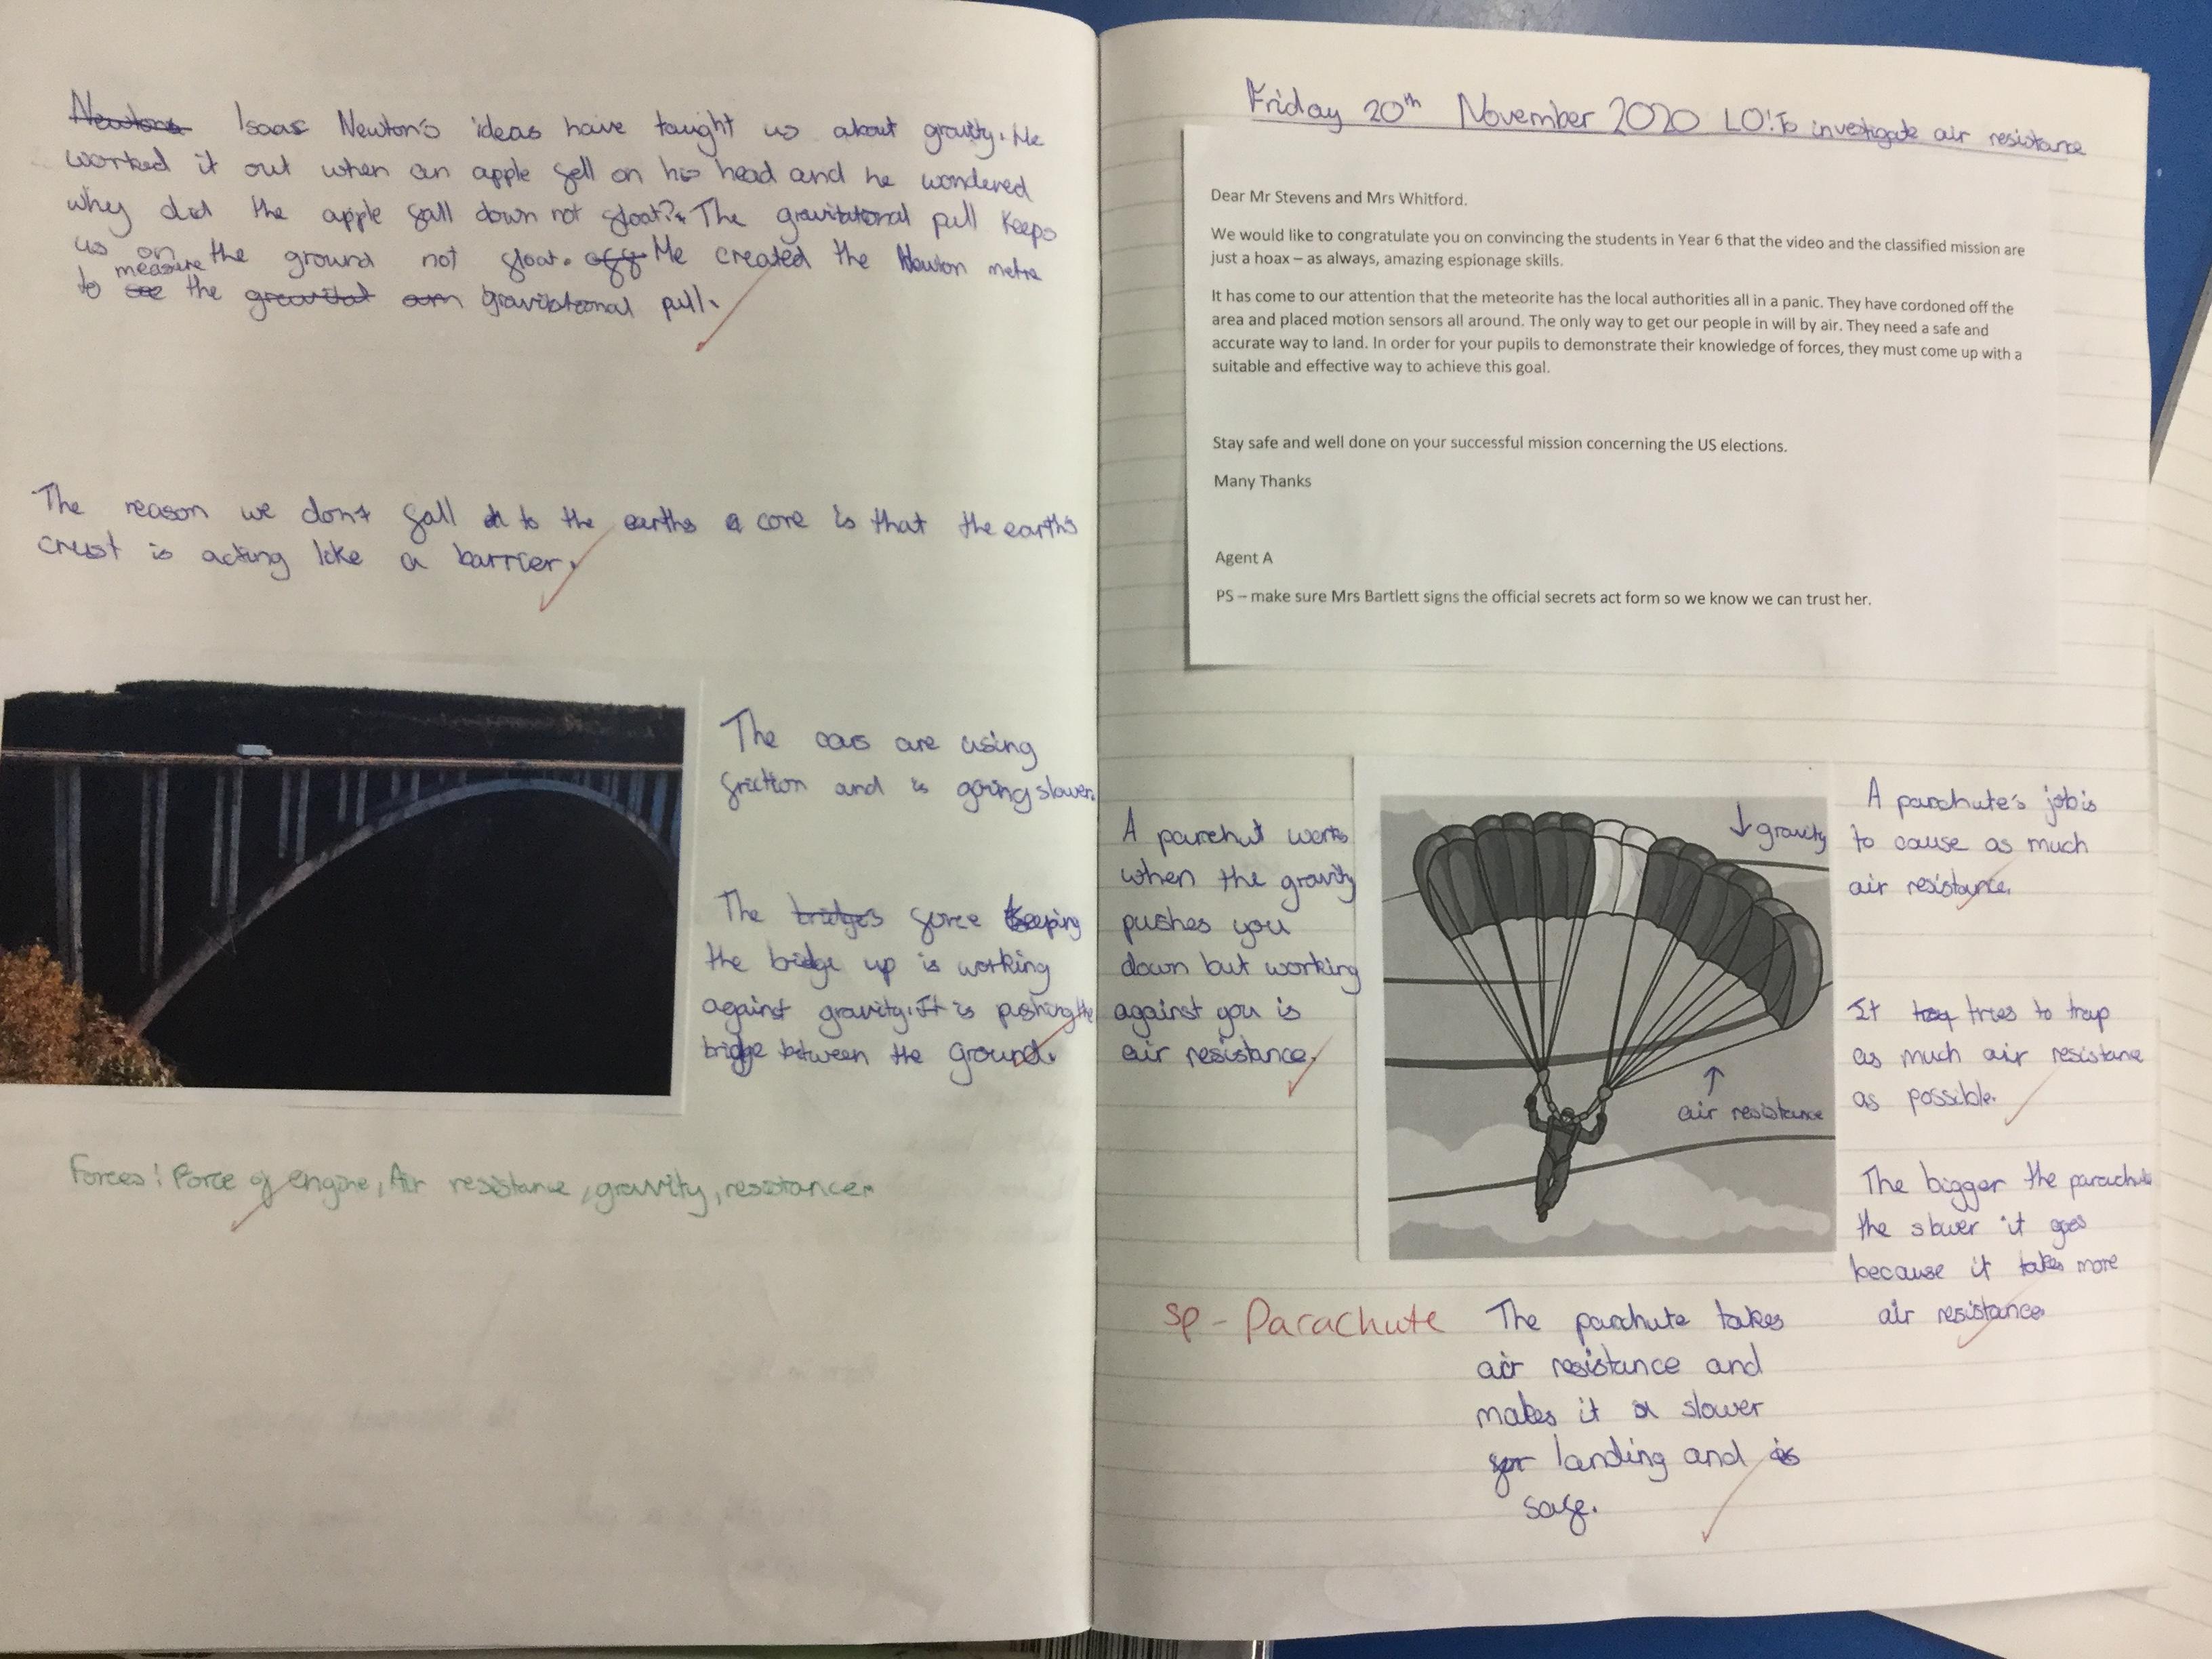 Newtons Isaac Newton's ideas have taught us about gravity. He
worked it out when an apple fell on his head and he wondered
why did the apple fall down not float? The gravitational pull keeps
us on the ground not float. off He created the Newton metre
measure
to see the gravital gravitational pull.
The reason we don't fall to the earths core is that the earth's
crust is acting like a barrier.
The cars are using
friction and is going slower.
The bridges force keeping
the bridge up is working
against gravity. It is pushing the
bridge between the ground.
Forces: Force of engine, Air resistance, gravity, resistance.
Friday 20th November 2020 LO: To investigate air resistance
Dear Mr Stevens and Mrs Whitford.
We would like to congratulate you on convincing the students in Year 6 that the video and the classified mission are
just a hoax – as always, amazing espionage skills.
It has come to our attention that the meteorite has the local authorities all in a panic. They have cordoned off the
area and placed motion sensors all around. The only way to get our people in will by air. They need a safe and
accurate way to land. In order for your pupils to demonstrate their knowledge of forces, they must come up with a
suitable and effective way to achieve this goal.
Stay safe and well done on your successful mission concerning the US elections.
Many Thanks
Agent A
PS – make sure Mrs Bartlett signs the official secrets act form so we know we can trust her.
A parchut works
when the gravity
pushes you
down but working
against you is
air resistance.
↓ gravity
↑
air resistance
A parchute's job is
to cause as much
air resistance.
It tries to trap
as much air resistance
as possible.
The bigger the parachute
the slower it goes
because it takes more
air resistance
sp - Parachute
The parchute takes
air resistance and
makes it a slower
for landing and is
safe.